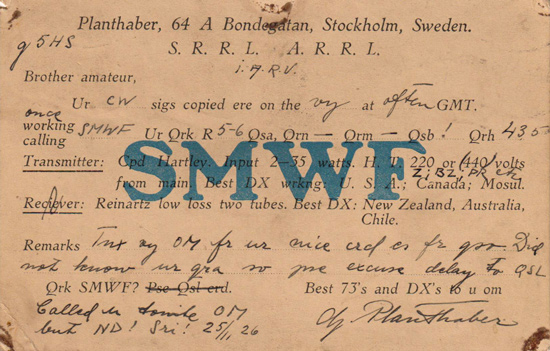 Planthaber, 64 A Bondegatan, Stockholm, Sweden.
g 5HS
S. R. R. L. A. R. R. L.
i.A.R.V.
Brother amateur,
Ur CW sigs copied ere on the vy at often GMT.
once
working SMWF Ur Qrk R 5-6 Qsa, Qrn — Qrm — Qsb! Qrh 435
calling
SMWF
Transmitter: Cpd Hartley. Input 2—35 watts. H. T. 220 or (440) volts
Z, BZ, PR etc
from main. Best DX wrkng: U. S. A.; Canada; Mosul.
Reciever: Reinartz low loss two tubes. Best DX: New Zealand, Australia,
Chile.
Remarks Tnx vy OM fr ur nice crd es fr qso. Did
not know ur qra so pse excuse delay to QSL
Qrk SMWF? Pse Qsl crd. Best 73's and DX's to u om
Called u tonite OM
but ND! Sri! 25/1, 26
Planthaber